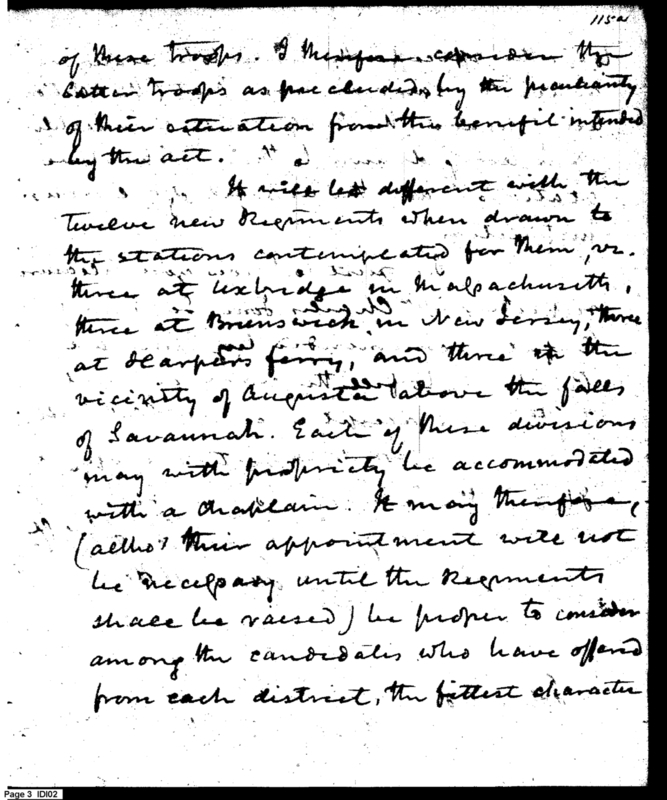 115a
of these troops. I therefore consider the
latter troops as precluded, by the peculiarity
of their situation from the benefit intended
by the act.
It will be different with the
twelve new Regiments when drawn to
the stations contemplated for them, vz.
three at Uxbridge in Massachusetts,
three at Brunswick, in New Jersey, three
at Harpers ferry, and three in the
vicinity of Augusta above the falls
of Savannah. Each of these divisions
may with propriety be accommodated
with a chaplain. It may therefore,
(altho' their appointment will not
be necessary until the Regiments
shall be raised) be proper to consider
among the candidates who have offered
from each district, the fittest character
Page 3 IDI02